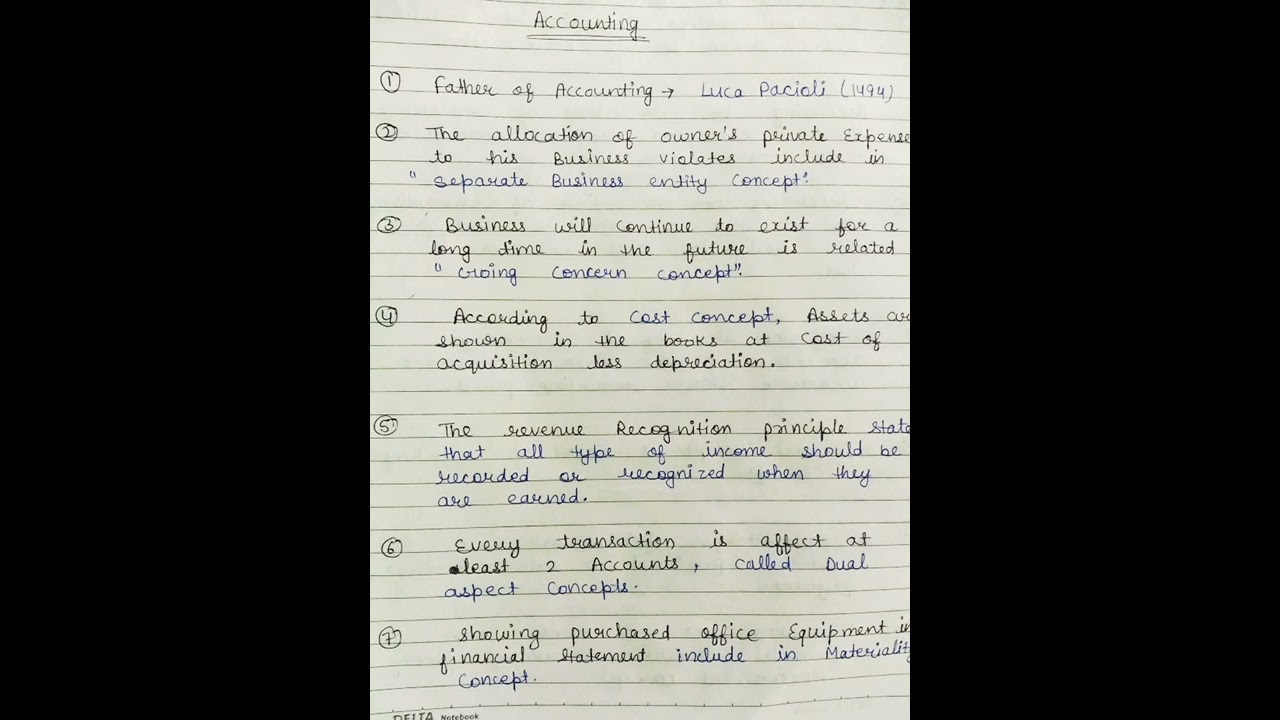 Accounting
① Father of Accounting → Luca Pacioli (1494)
② The allocation of owner's private Expense
to his Business violates include in
" Separate Business entity Concept".
③ Business will continue to exist for a
long time in the future is related
" Going Concern concept".
④ According to Cost concept, Assets are
shown in the books at Cost of
acquisition less depreciation.
⑤ The revenue Recognition principle state
that all type of income should be
recorded or recognized when they
are earned.
⑥ Every transaction is affect at
least 2 Accounts, called Dual
aspect Concepts.
⑦ showing purchased office Equipment in
financial statement include in Materiality
Concept.
DELTA Notebook